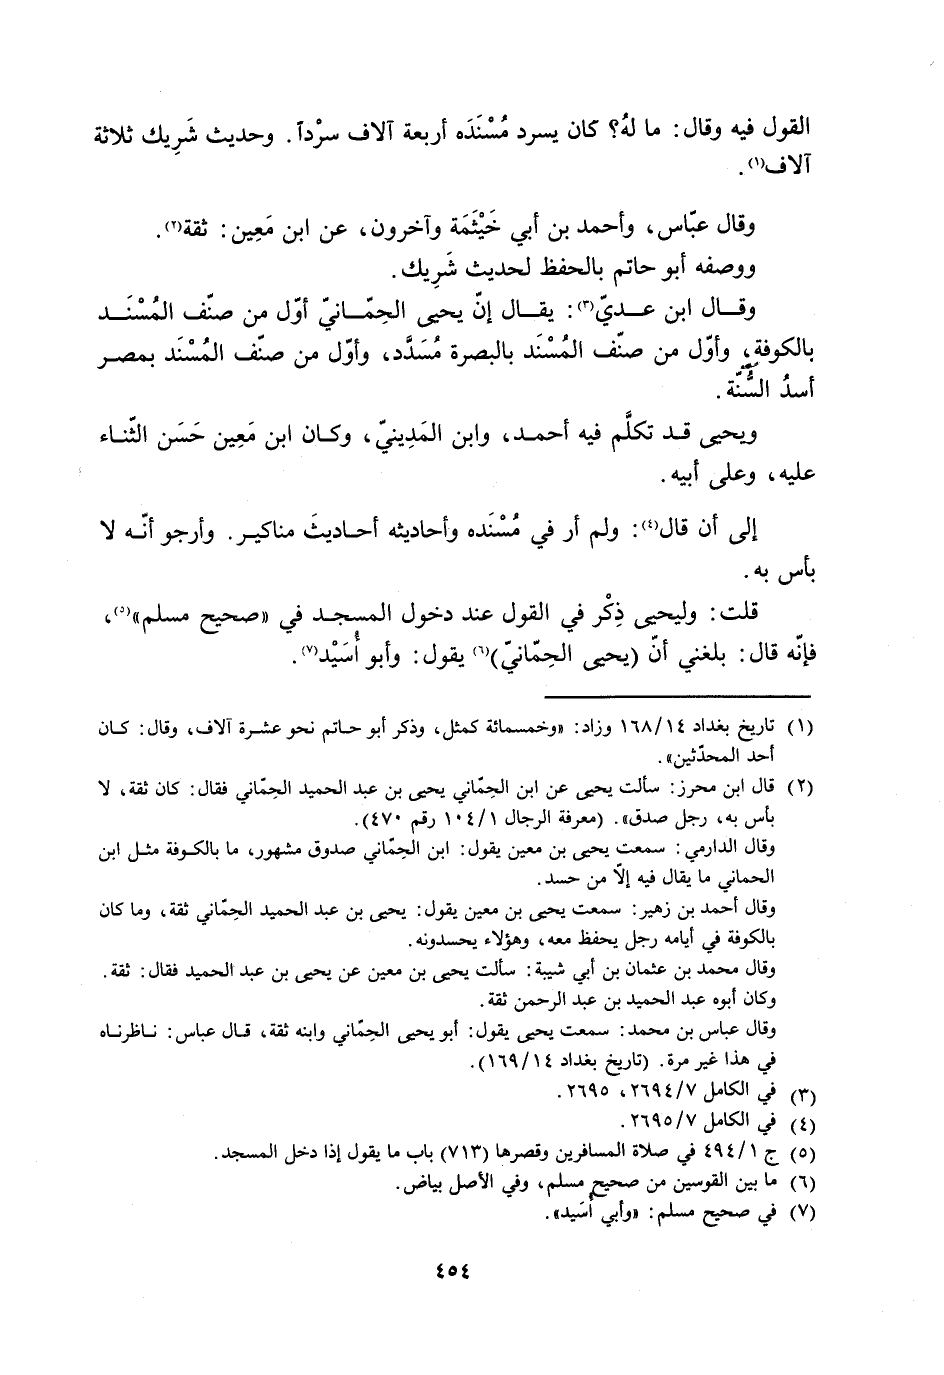 القول فيه وقال: ما لهُ؟ كان يسرد مُسْنَدَه أربعة آلاف سرْداً. وحديث شَرِيك ثلاثة
آلاف(١).
وقال عبّاس، وأحمد بن أبي خَيْثَمَة وآخرون، عن ابن مَعِين: ثقة(٢).
ووصفه أبو حاتم بالحفظ لحديث شَرِيك.
وقال ابن عديّ(٣): يقال إنّ يحيى الحِمّانيّ أوّل من صنّف المُسْنَد
بالكوفةِ، وأوّل من صنّف المُسْنَد بالبصرة مُسَدَّد، وأوّل من صنّف المُسْنَد بمصر
أسدُ السُّنّة.
ويحيى قد تكلَّم فيه أحمد، وابن المَدِينيّ، وكان ابن مَعِين حَسَن الثّناء
عليه، وعلى أبيه.
إلى أن قال(٤): ولم أر في مُسْنَده وأحاديثه أحاديثَ مناكير. وأرجو أنّه لا
بأس به.
قلت: وليحيى ذِكْر في القول عند دخول المسجد في «صحيح مسلم»(٥)،
فإنّه قال: بلغني أنّ (يحيى الحِمّانيّ)(٦) يقول: وأبو أُسَيْد(٧).
(١) تاريخ بغداد ١٦٨/١٤ وزاد: «وخمسمائة كمثل، وذكر أبو حاتم نحو عشرة آلاف، وقال: كان
أحد المحدّثين».
(٢) قال ابن محرز: سألت يحيى عن ابن الحِمّاني يحيى بن عبد الحميد الحِمّاني فقال: كان ثقة، لا
بأس به، رجل صدق». (معرفة الرجال ١٠٤/١ رقم ٤٧٠).
وقال الدارمي: سمعت يحيى بن معين يقول: ابن الحِمّاني صدوق مشهور، ما بالكوفة مثل ابن
الحماني ما يقال فيه إلاّ من حسد.
وقال أحمد بن زهير: سمعت يحيى بن معين يقول: يحيى بن عبد الحميد الحِمّاني ثقة، وما كان
بالكوفة في أيامه رجل يحفظ معه، وهؤلاء يحسدونه.
وقال محمد بن عثمان بن أبي شيبة: سألت يحيى بن معين عن يحيى بن عبد الحميد فقال: ثقة.
وكان أبوه عبد الحميد بن عبد الرحمن ثقة.
وقال عباس بن محمد: سمعت يحيى يقول: أبو يحيى الحِمّاني وابنه ثقة، قال عباس: ناظرناه
في هذا غير مرة. (تاريخ بغداد ١٦٩/١٤).
(٣) في الكامل ٢٦٩٤/٧، ٢٦٩٥.
(٤) في الكامل ٢٦٩٥/٧.
(٥) ج ٤٩٤/١ في صلاة المسافرين وقصرها (٧١٣) باب ما يقول إذا دخل المسجد.
(٦) ما بين القوسين من صحيح مسلم، وفي الأصل بياض.
(٧) في صحيح مسلم: «وأبي أُسَيد».
٤٥٤